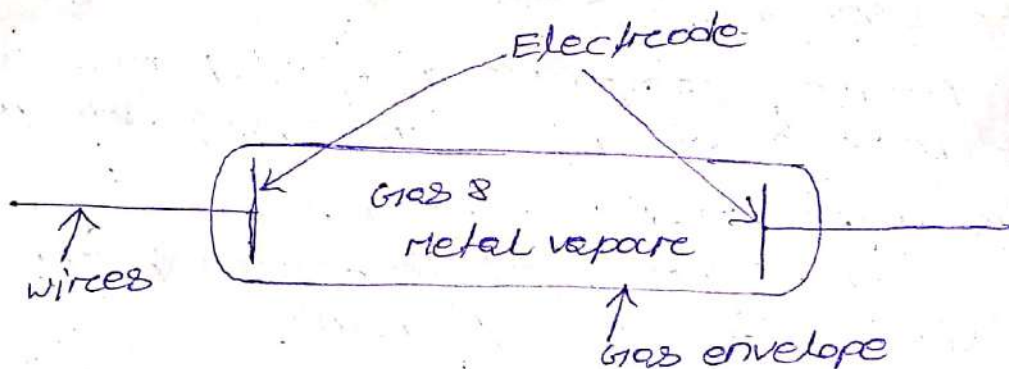 Electrode
Gas &
Metal vapoure
wires
Gas envelope